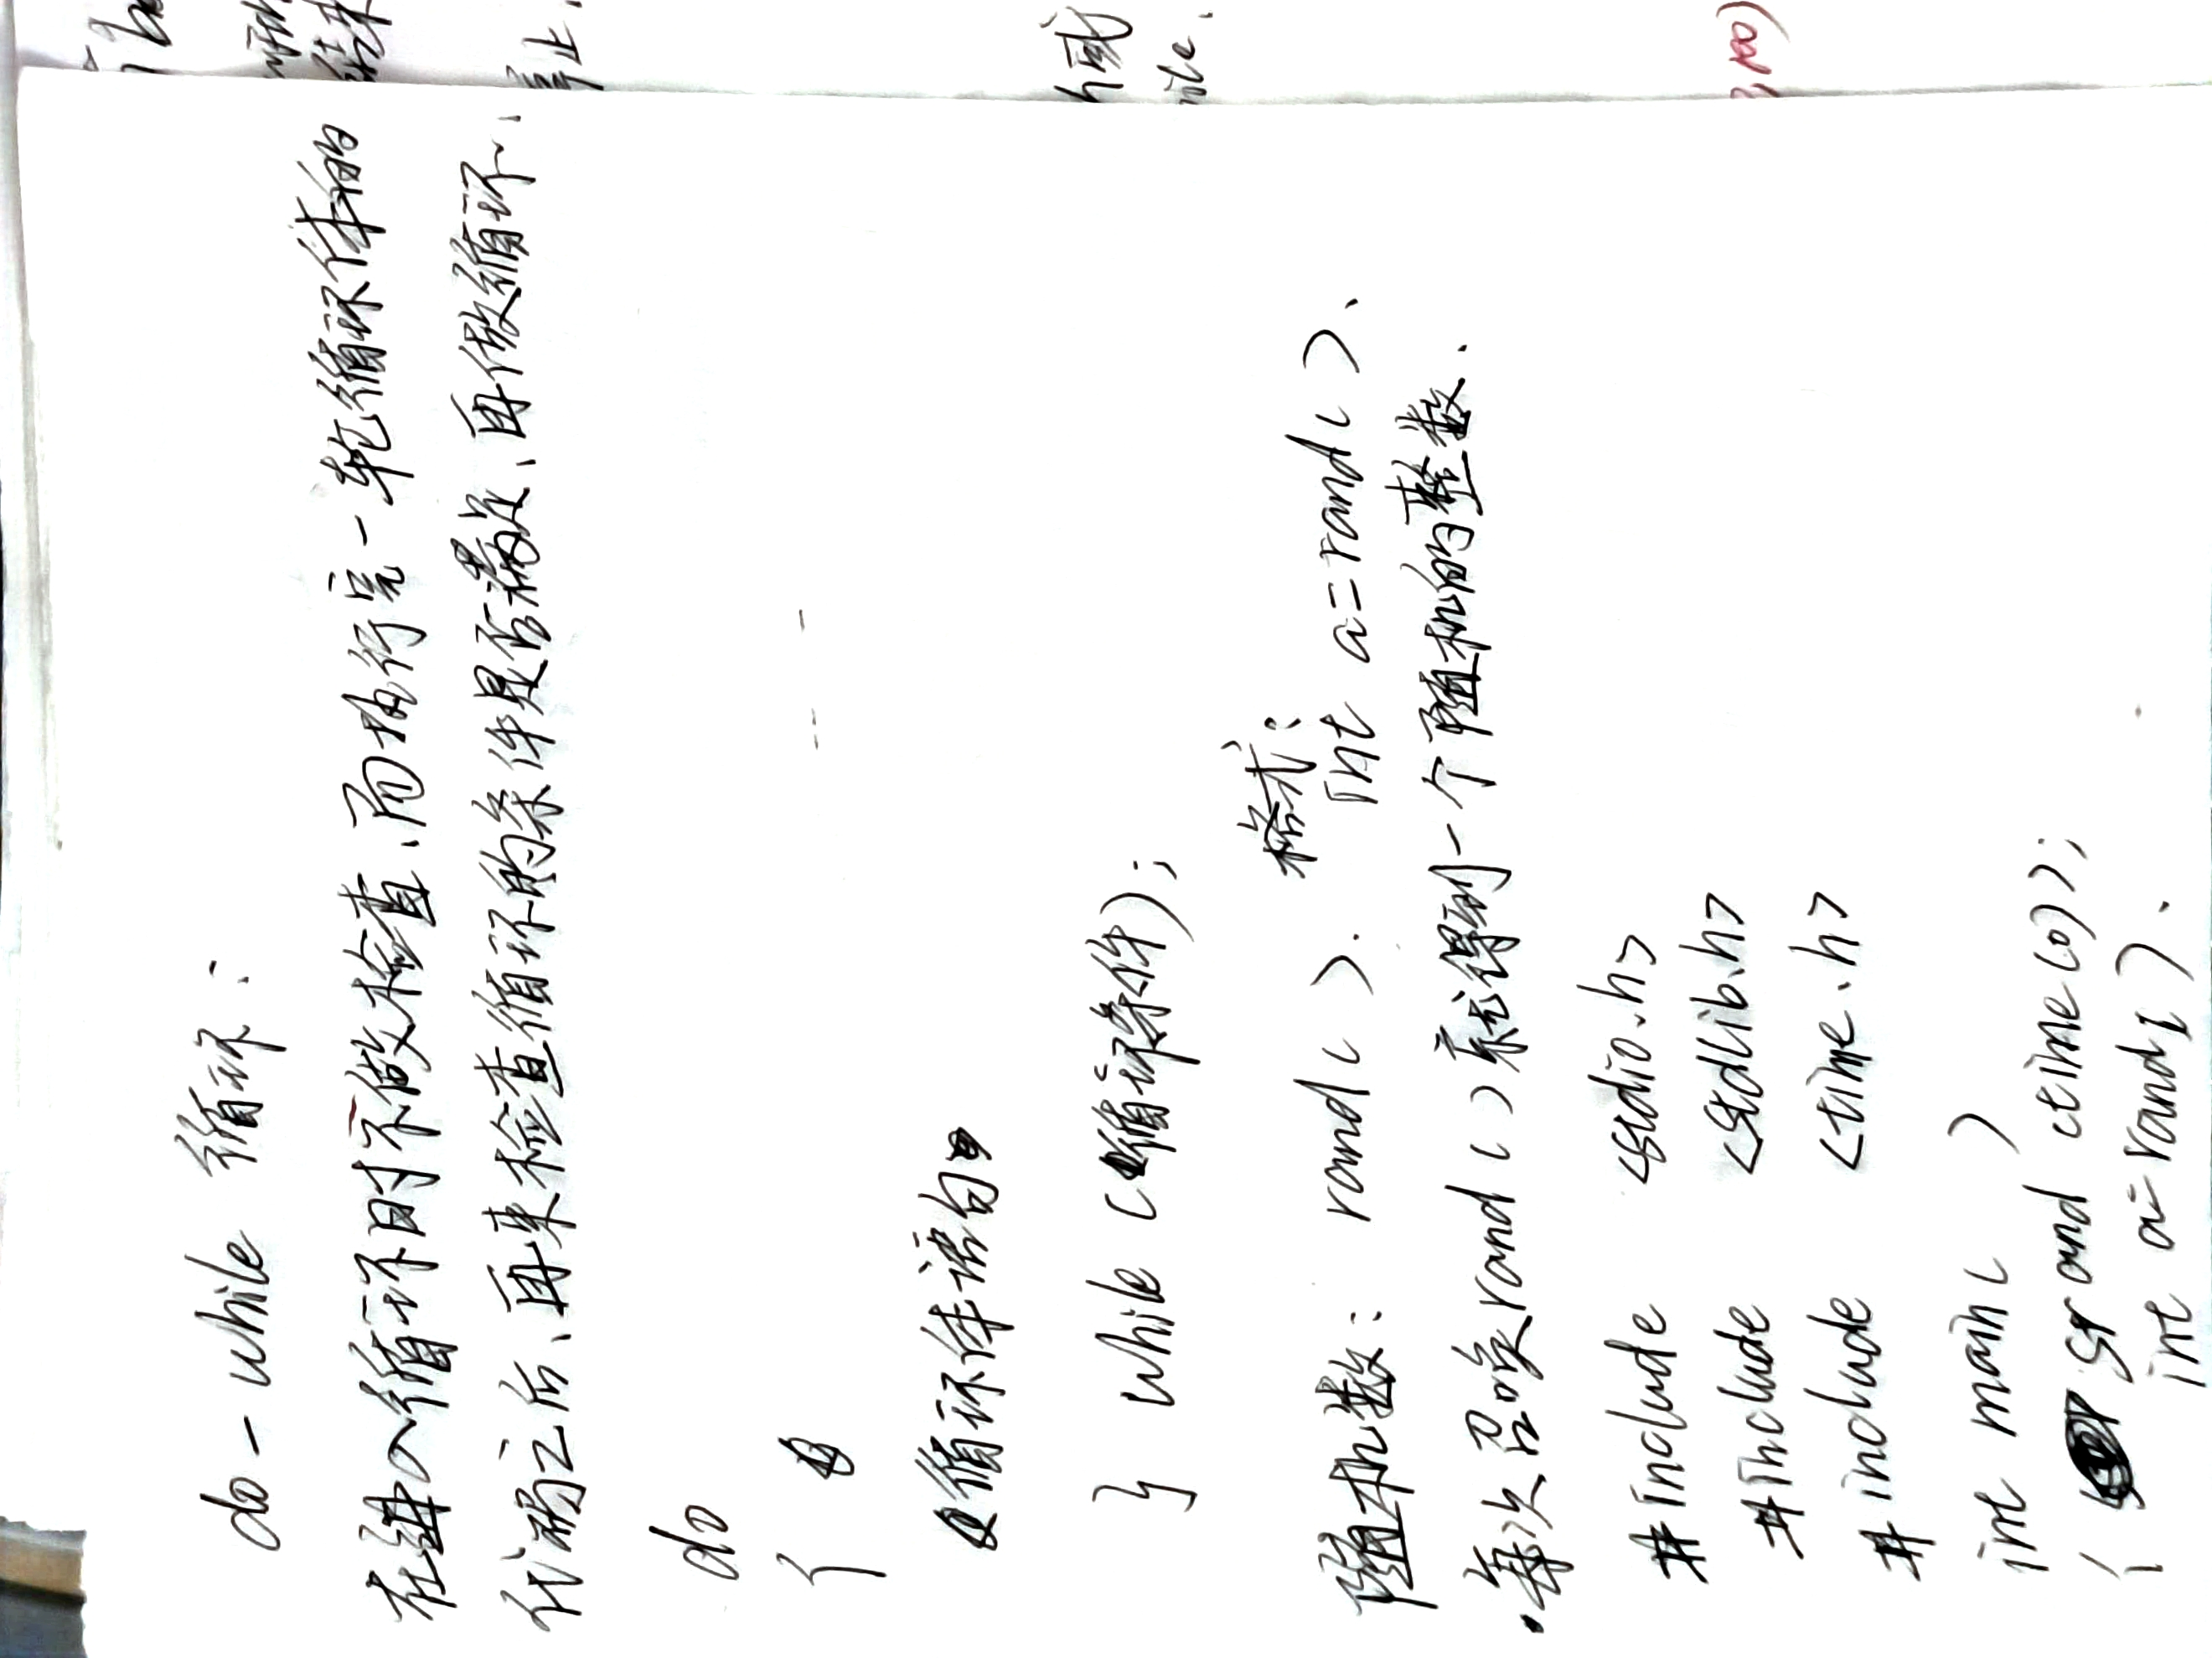 do - while 循环:
在进入循环时不做检查、而执行完一轮循环体的
代码之后、再来检查循环的条件是否满足、再做循环、
do
{
循环体语句
} while (循环条件);
随机数: rand( ). 格式: int a=rand( ).
·每次召唤rand( )系统得到一个随机的的整数.
#include <stdio.h>
#include <stdlib.h>
#include <time.h>
int main( )
{ srand (time(0));
int a=rand( ).